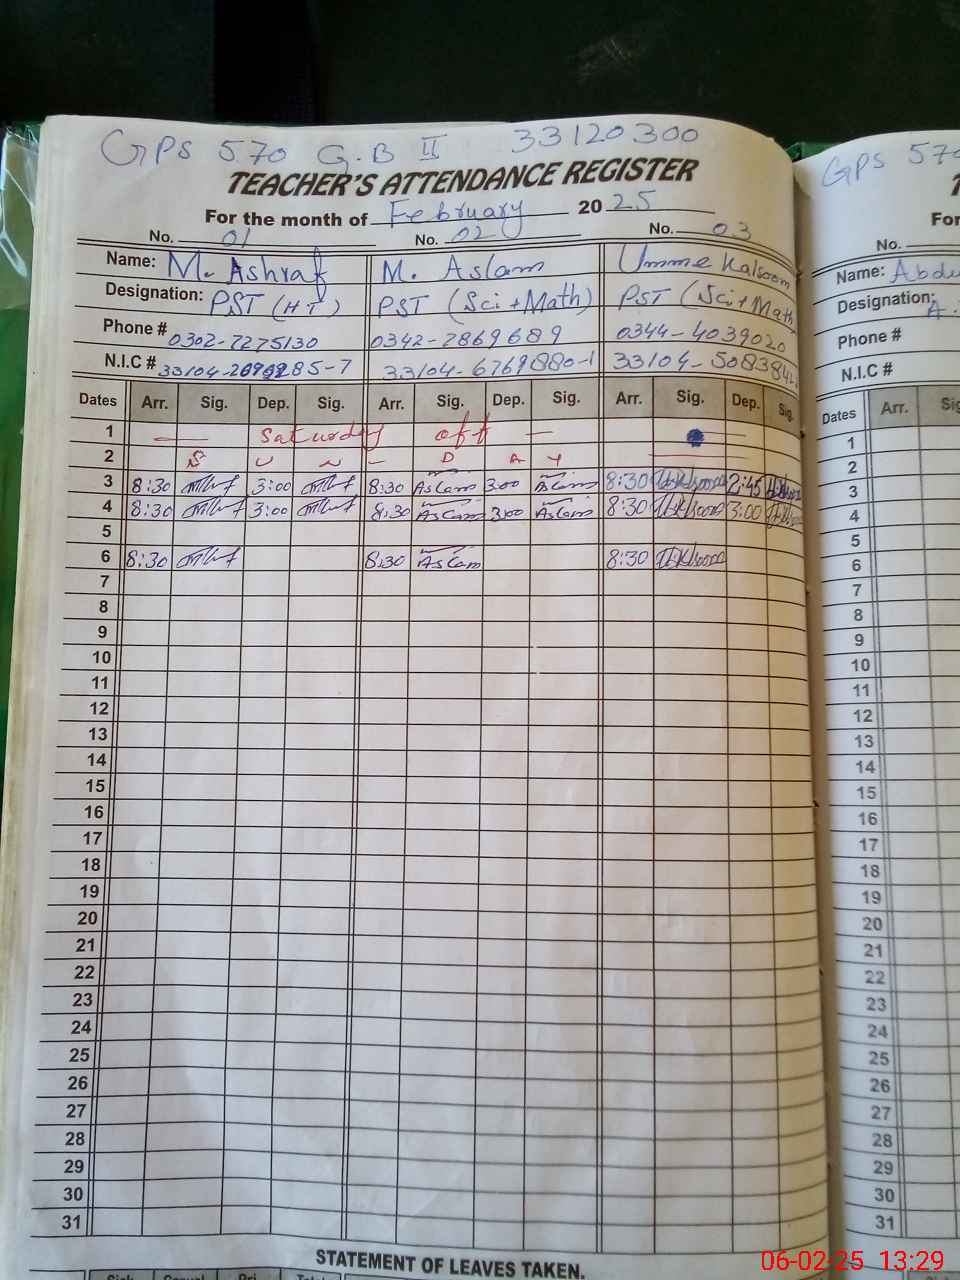 GPS 570 G.B II 33120300
TEACHER'S ATTENDANCE REGISTER
For the month of February 2025
No. 01 No. 02 No. 03
Name: M. Ashraf M. Aslam Umme Kalsoom
Designation: PST (HT) PST (Sci+Math) PST (Sci+Math
Phone # 0302-7275130 0342-7869689 0344-4039020
N.I.C # 33104- 85-7 33104-6769880-1 33104-508384
Dates Arr. Sig. Dep. Sig. Arr. Sig. Dep. Sig. Arr. Sig. Dep. Sig.
1 Saturday off
2 S U N D A Y
3 8:30 3:00 8:30 Aslam 3:00 Aslam 8:30 2:45
4 8:30 3:00 8:30 Aslam 3:00 Aslam 8:30 3:00
5
6 8:30 8:30 Aslam 8:30
7
8
9
10
11
12
13
14
15
16
17
18
19
20
21
22
23
24
25
26
27
28
29
30
31
STATEMENT OF LEAVES TAKEN.
Sick Casual Pri. Total
GPS 570
For
No.
Name: Abdu
Designation: A.
Phone #
N.I.C #
Dates Arr. Sig
1
2
3
4
5
6
7
8
9
10
11
12
13
14
15
16
17
18
19
20
21
22
23
24
25
26
27
28
29
30
31
06-02-25 13:29